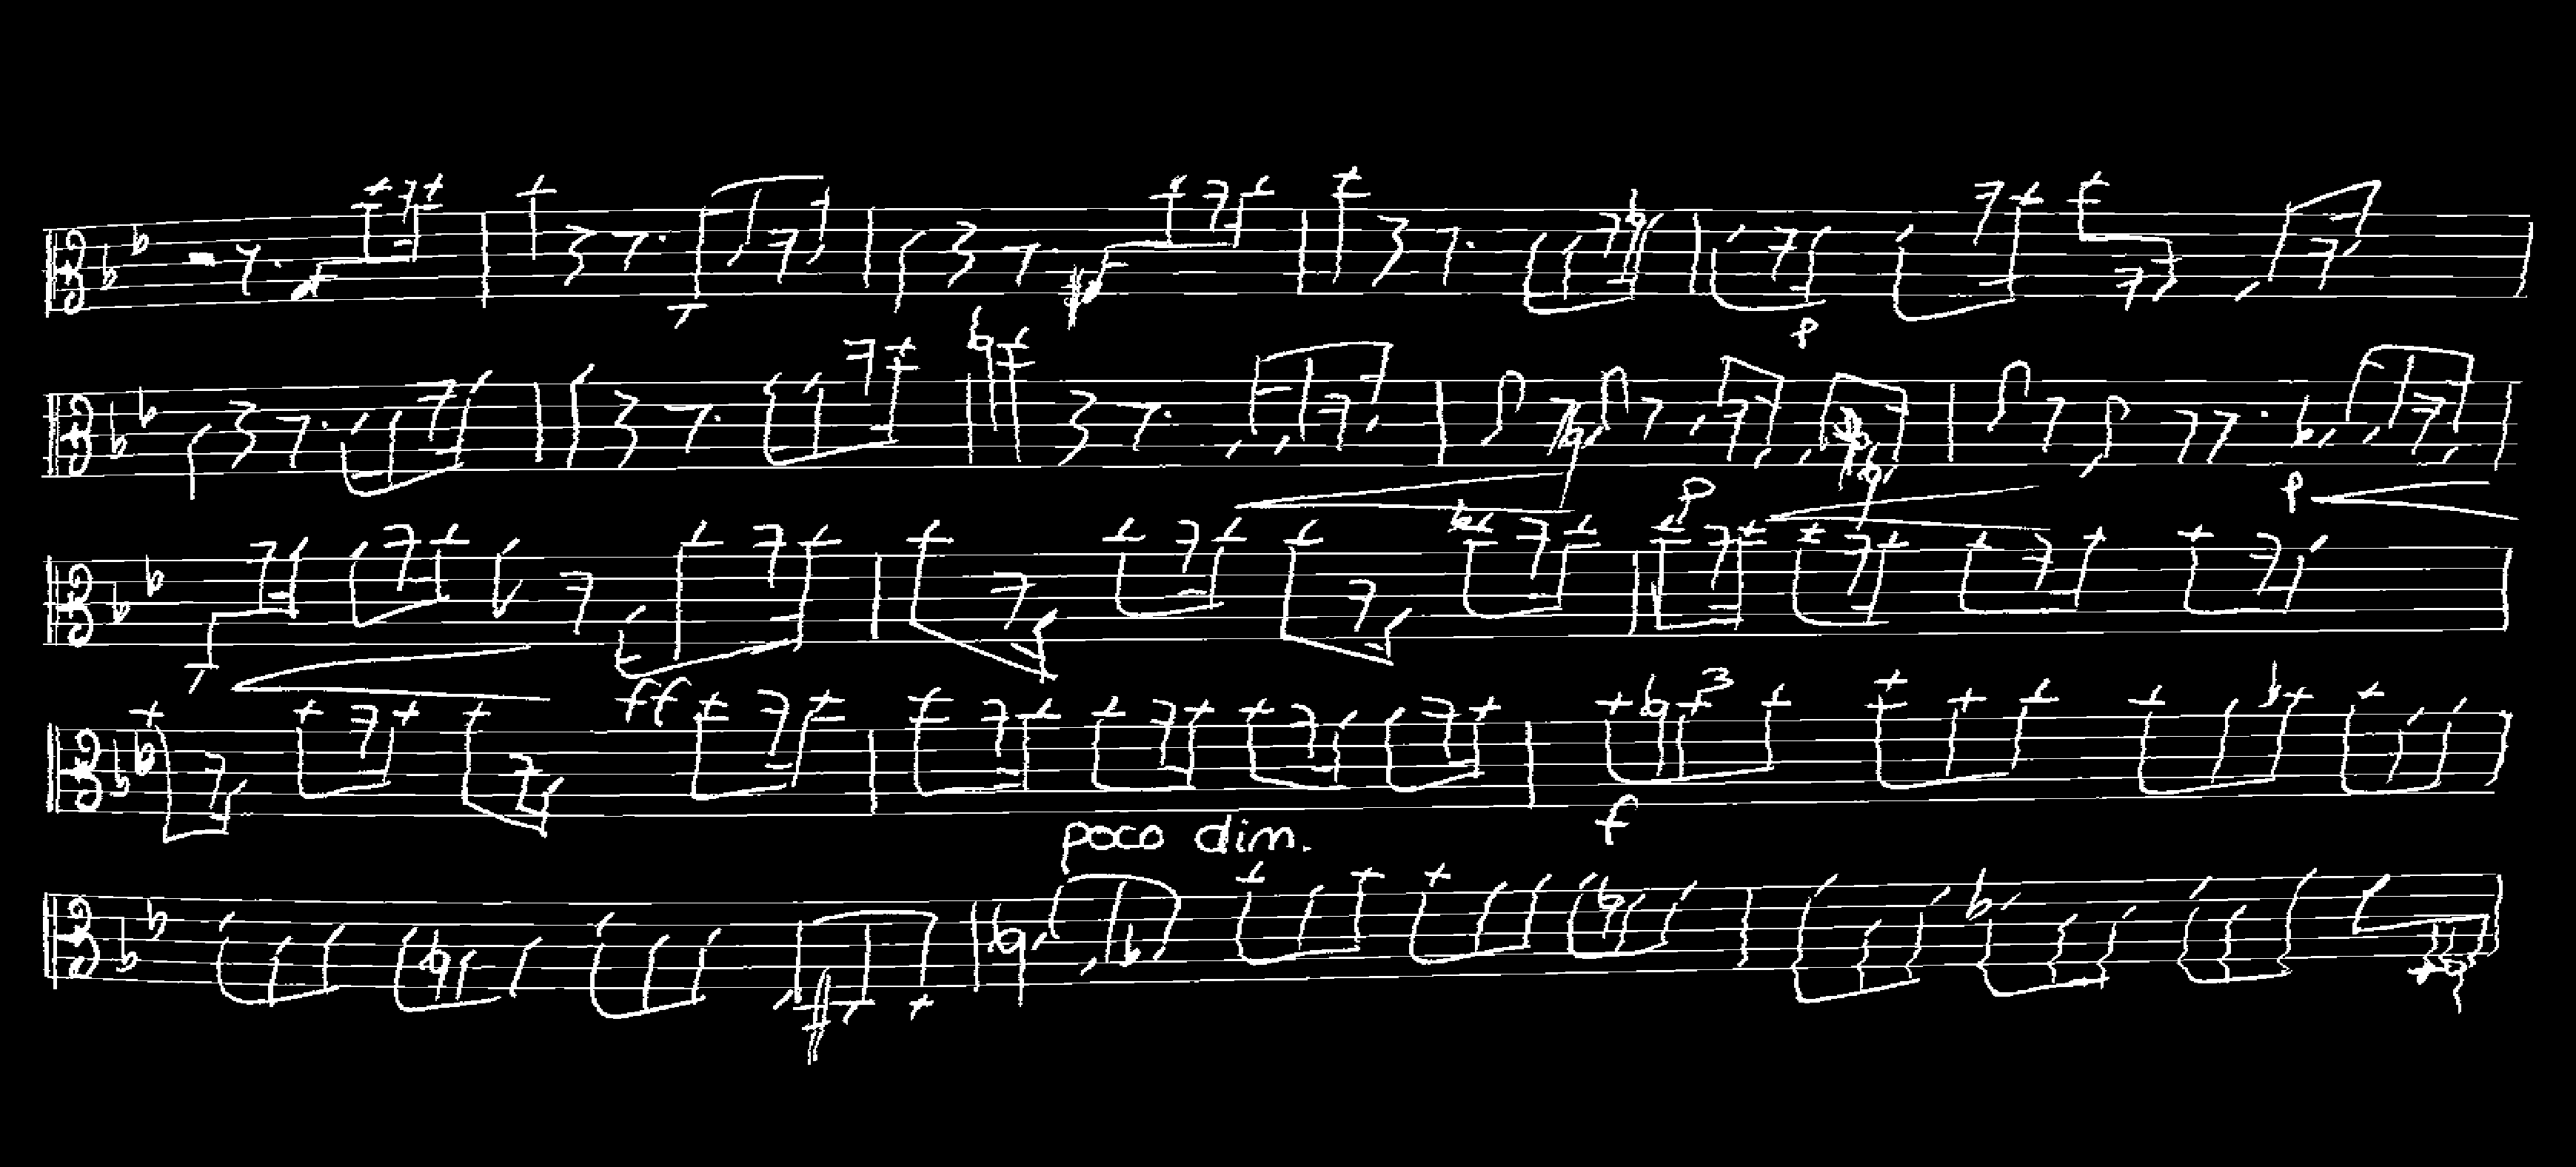 p
p
p
ff
3
f
poco dim.